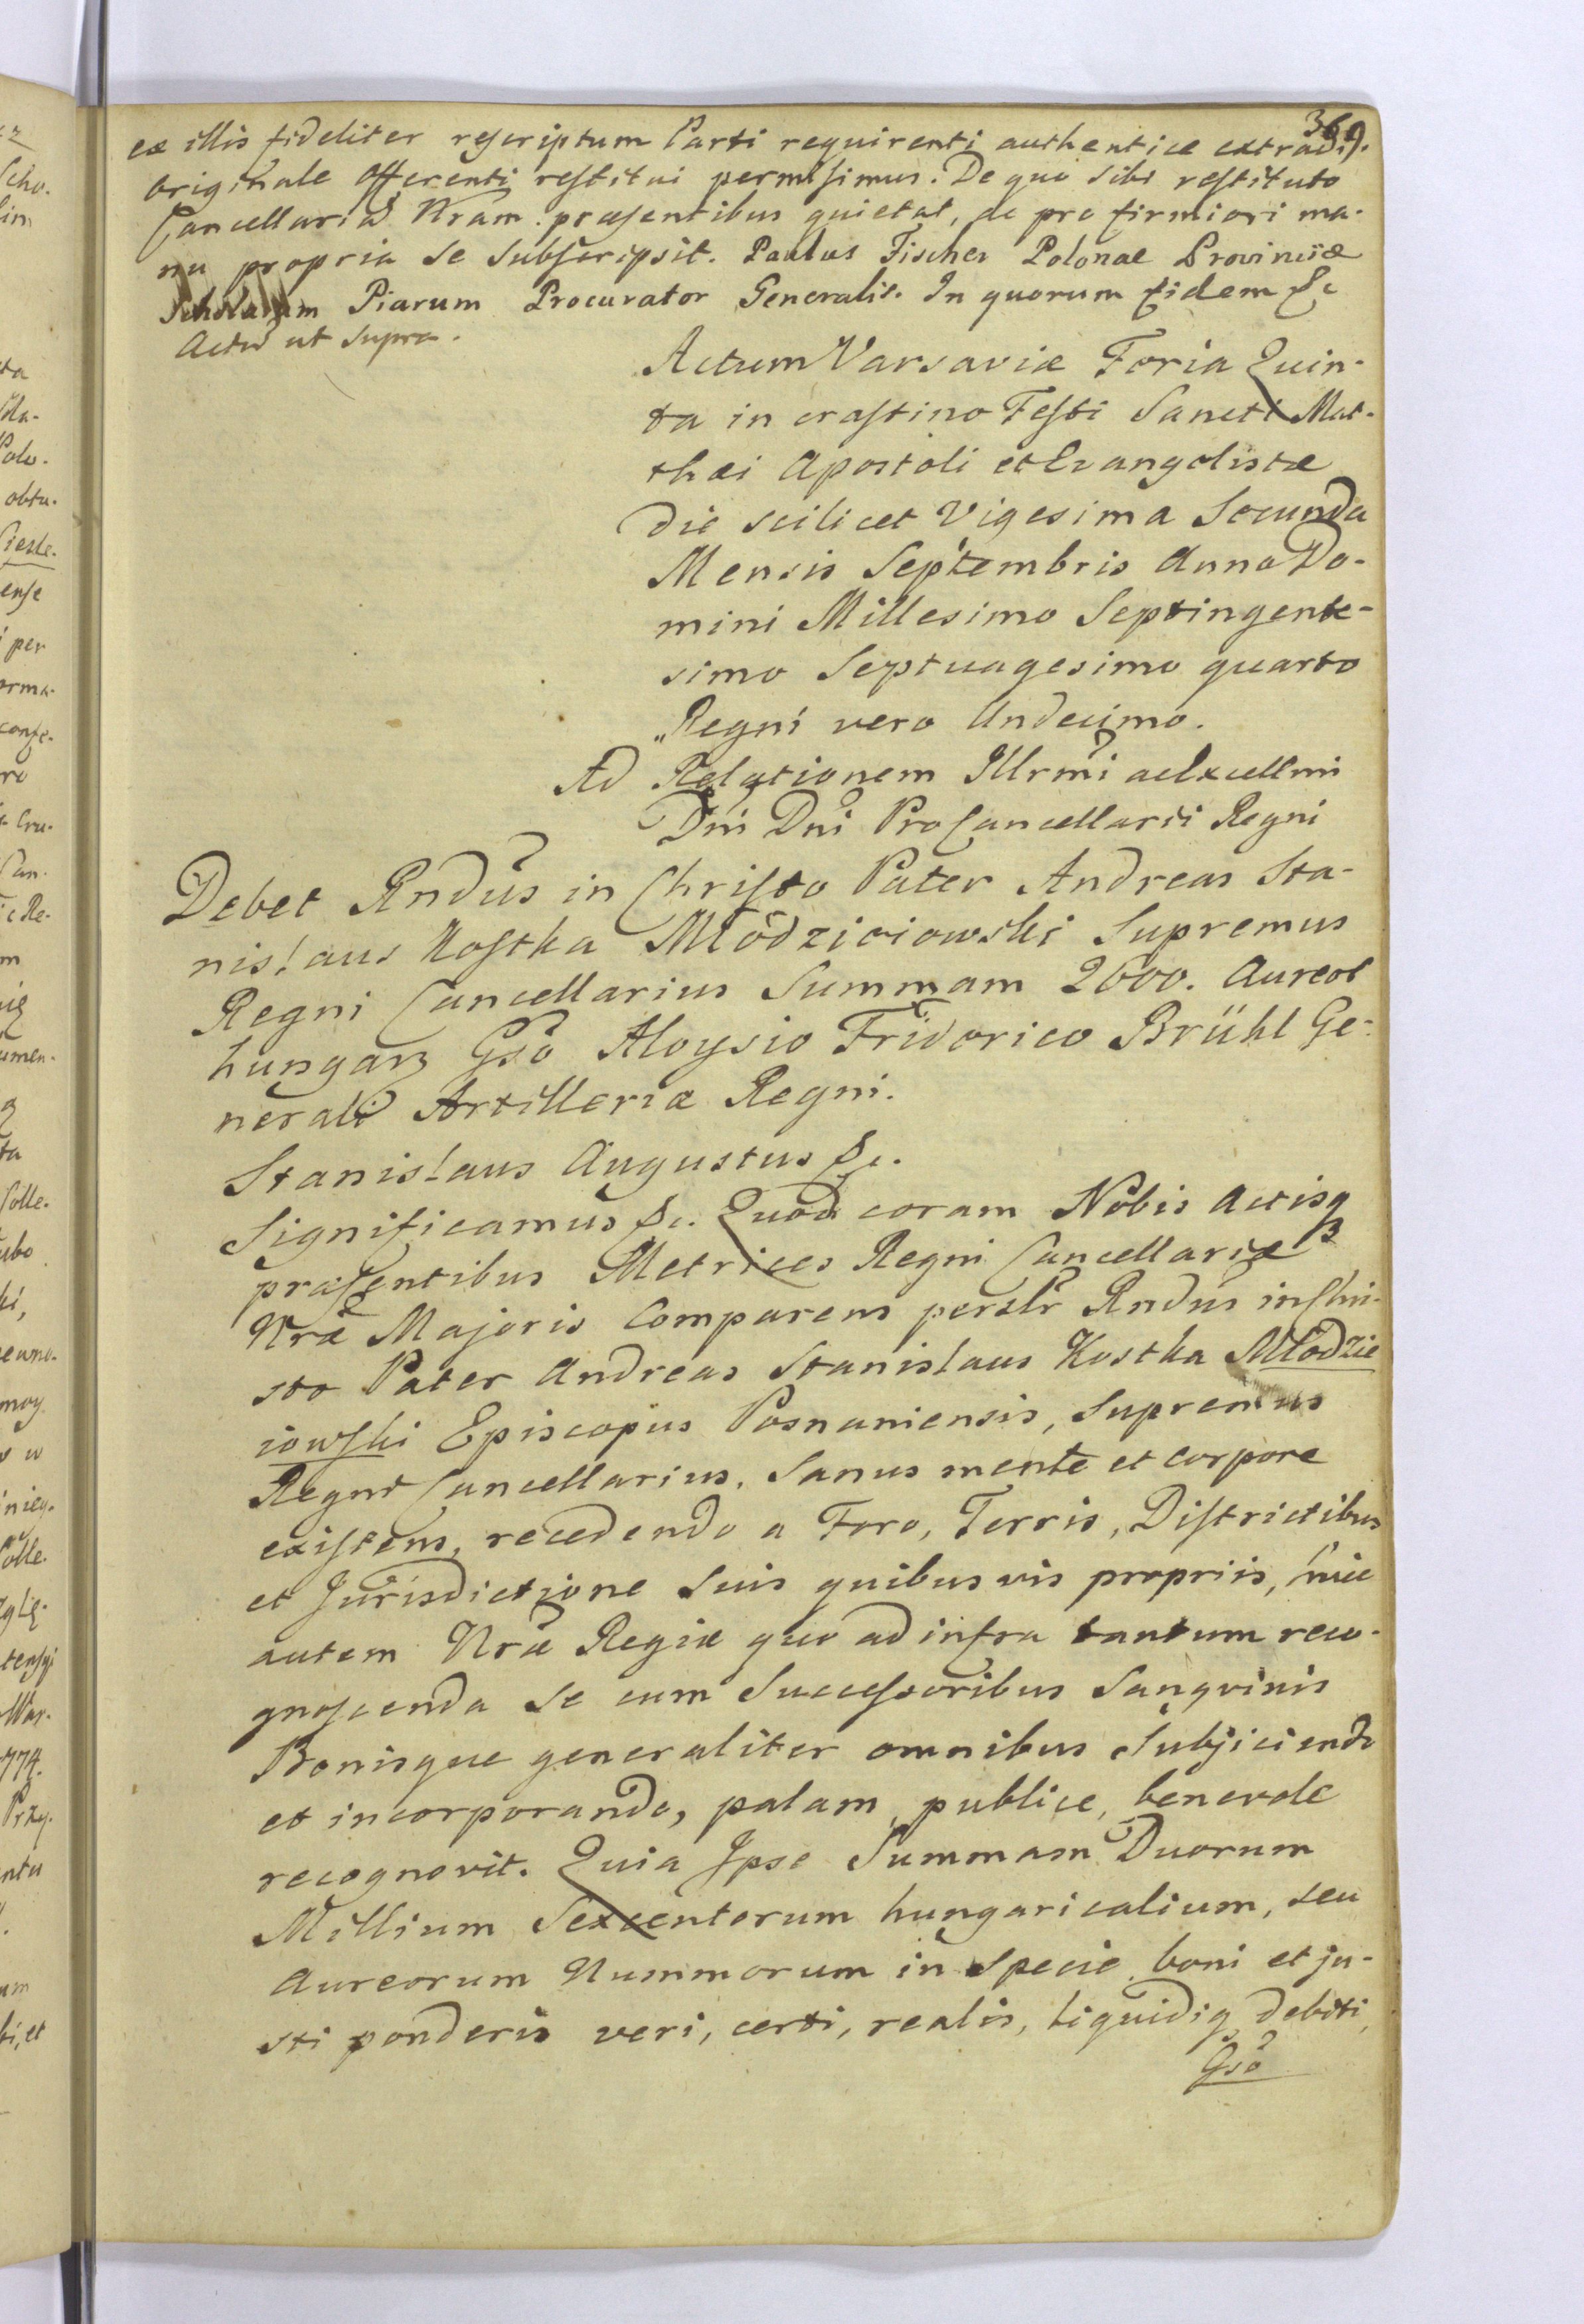 369.
ex illis fideliter rescriptum Parti requirenti authentice extradi.
originale offerenti restitui permisimus. De quo sibi restituto
Cancellariã Nram. præsentibus quietat, ac pro firmiori ma-
nu propria se subscripsit. Paulus Fischer Polonae Provinciæ
Scholarum Piarum Procurator Generalis. In quorum fidem &c
Actũ ut supra.
Actum Varsaviæ Feria Quin-
ta in crastino Festi Sancti Mat-
thæi Apostoli et Evangelistæ
die scilicet Vigesima Secunda
Mensis Septembris Anno Do-
mini Millesimo Septingente-
simo Septuagesimo quarto
Regni vero Undecimo.
Ad Relationem Illrmi ac Excellmi
Dni Dni ProCancellarii Regni
Debet Rndus in Christo Pater Andreas Sta-
nislaus Kostka Młodzieiowski Supremus
Regni Cancellarius Summam 2600. Aureor
hungarz Gso Aloysio Friderico Brühl Ge-
nerali Artilleriæ Regni.
Stanislaus Augustus &c.
Significamus &c. Quod coram Nobis Actisq3
præsentibus Metrices Regni Cancellariæ
Nræ Majoris Comparens persłr Rndus in Chri-
sto Pater Andreas Stanislaus Kostka Młodzie
iowski Episcopus Posnaniensis, Supremus
Regni Cancellarius, Sanus mente et corpore
existens, recedendo a Foro, Terris, Districtibus
et Jurisdictione suis quibusvis propriis, huic
autem Nræ Regiæ quo ad infra tantum reco-
gnoscenda se cum Successoribus Sangvinis
Bonisque generaliter omnibus Subjiciendo
et incorporando, palam, publice, benevole
recognovit. Quia Ipse Summam Duorum
Millium Sexcentorum hungaricalium, seu
Aureorum Nummorum in specie boni et ju-
sti ponderis veri, certi, realis, liquidiq debiti,
Gso